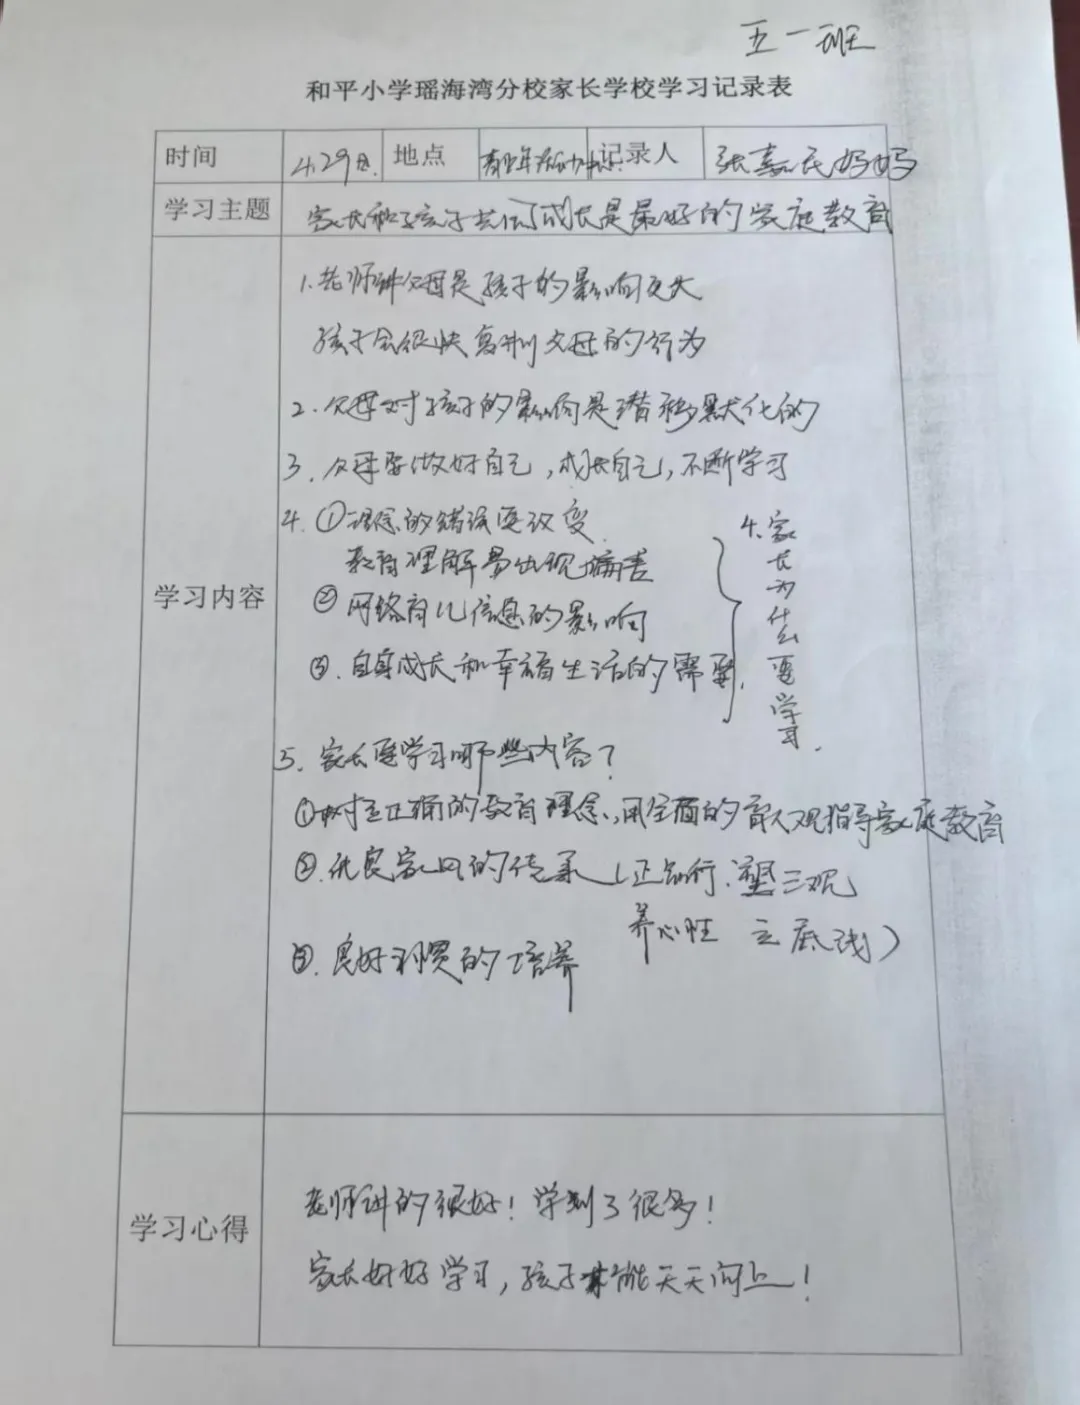 五一班
和平小学瑶海湾分校家长学校学习记录表
时间 4.29日. 地点 青少年活动中心 记录人 张嘉氏妈妈
学习主题 家长和孩子共同成长是最好的家庭教育
学习内容
1.老师讲父母是孩子的影响更大
孩子会很快复制父母的行为
2.父母对孩子的影响是潜移默化的
3.父母要做好自己,成长自己,不断学习
4.①理念的错误要改变.
教育理解易出现偏差
②网络育儿信息的影响
③.自身成长和幸福生活的需要.
4.家长为什么要学习.
5.家长要学习哪些内容?
①树立正确的教育理念,用全面的育人观指导家庭教育
②.优良家风的传承(正品行.塑三观
养心性 立底线)
③.良好习惯的培养
学习心得
老师讲的很好!学到了很多!
家长好好学习,孩子才能天天向上!